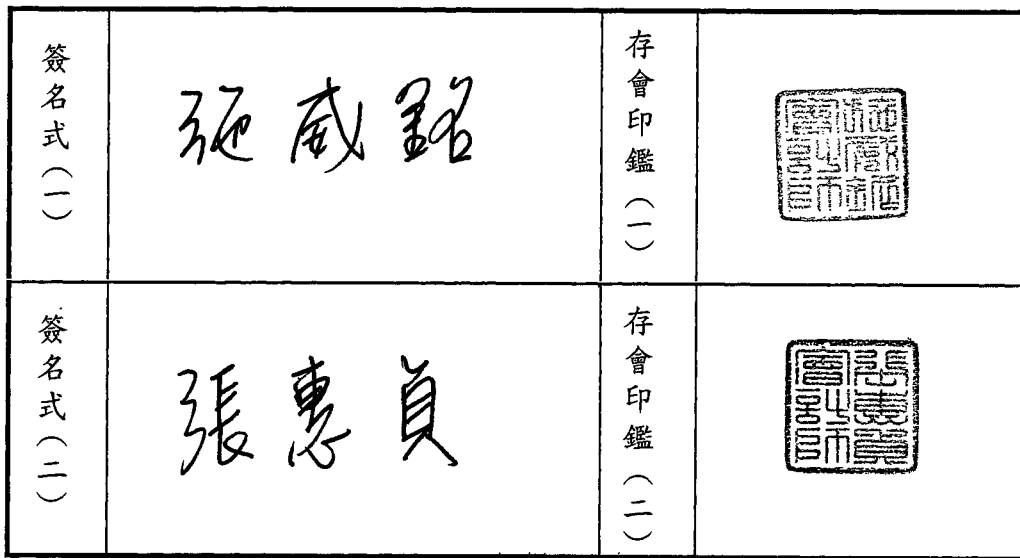 簽名式（一）
施威銘
存會印鑑（一）
施威銘會計師
簽名式（二）
張惠貞
存會印鑑（二）
張惠貞會計師